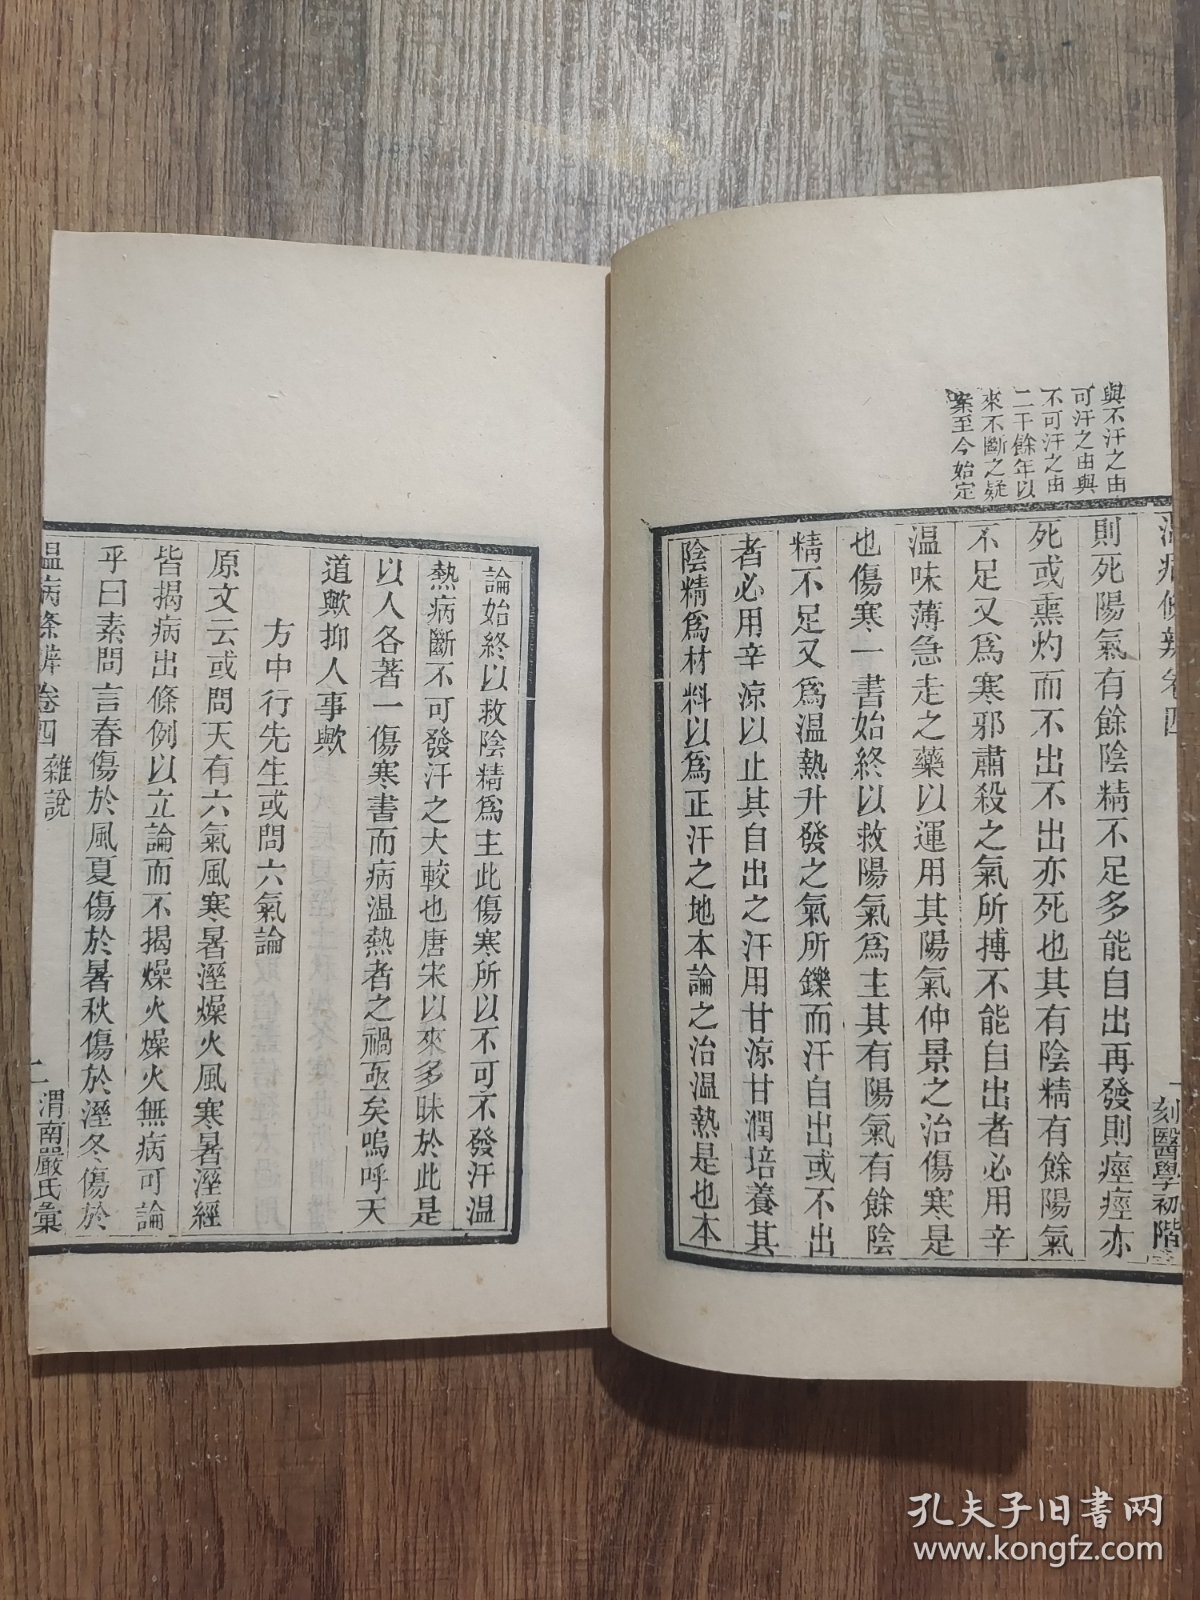 與不汗之由
可汗之由與
不可汗之由
二千餘年以
來不斷之疑
案至今始定
則死陽氣有餘陰精不足多能自出再發則痙痙亦
死或熏灼而不出不出亦死也其有陰精有餘陽氣
不足又爲寒邪肅殺之氣所搏不能自出者必用辛
温味薄急走之藥以運用其陽氣仲景之治傷寒是
也傷寒一書始終以救陽氣爲主其有陽氣有餘陰
精不足又爲温熱升發之氣所鑠而汗自出或不出
者必用辛涼以止其自出之汗用甘涼甘潤培養其
陰精爲材料以爲正汗之地本論之治温熱是也本
刻醫學初階
論始終以救陰精爲主此傷寒所以不可不發汗温
熱病斷不可發汗之大較也唐宋以來多昧於此是
以人各著一傷寒書而病温熱者之禍亟矣嗚呼天
道歟抑人事歟
方中行先生或問六氣論
原文云或問天有六氣風寒暑溼燥火風寒暑溼經
皆揭病出條例以立論而不揭燥火燥火無病可論
乎曰素問言春傷於風夏傷於暑秋傷於溼冬傷於
温病條辨 卷四 雜說
二 渭南嚴氏彙
孔夫子旧书网
www.kongfz.com